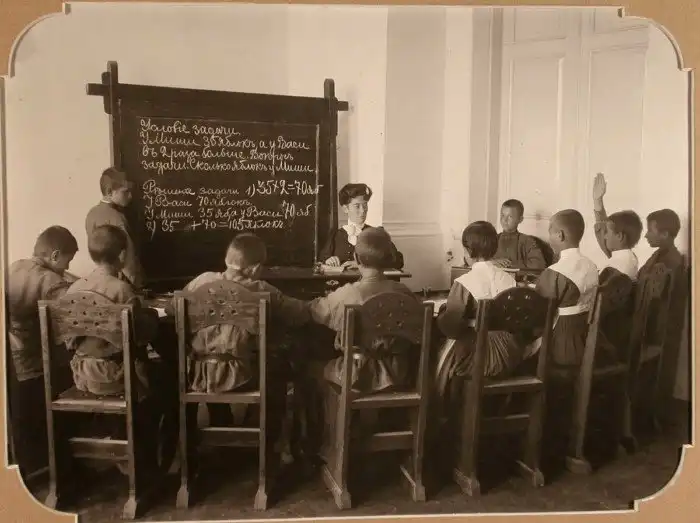 Условіе задачи.
У Миши 35 яблокъ, а у Васи
въ 2 раза больше. Вопросъ
задачи. Сколько яблок у Миши.
Решенія задачи 1) 35×2=70 яб
У Васи 70 яблокъ.
У Миши 35 ябл. а у Васи 70 яб
2) 35 + 70 = 105 яблок.